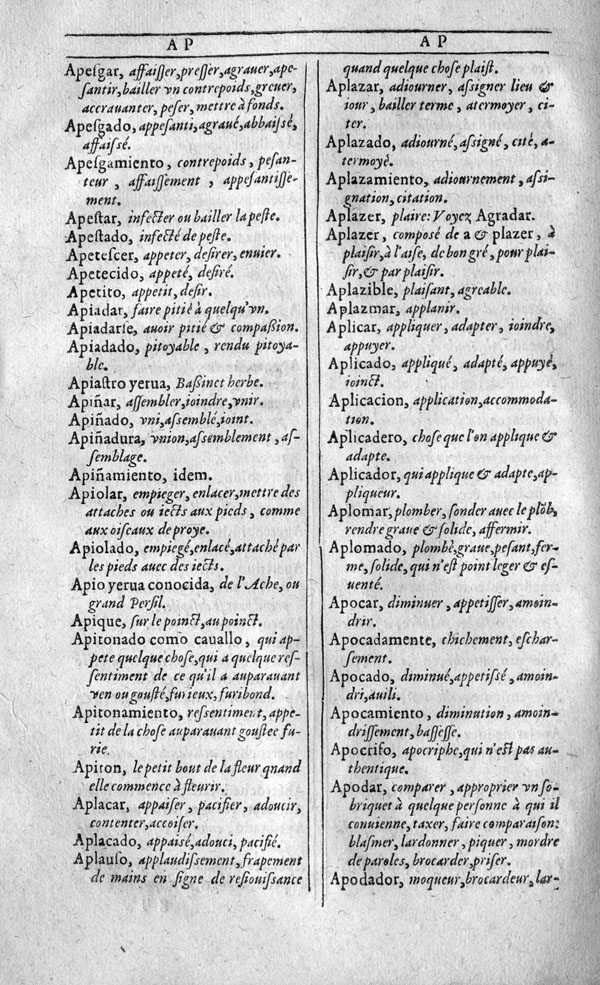 A P
Apeſgar, affaiſſer, preſſer, agrauer, ape-
ſantir, bailler vn contrepoids, greuer,
accrauanter, peſer, mettre à fonds.
Apeſgado, appeſanti, agraué, abbaiſſé,
affaiſſé.
Apeſgamiento, contrepoids, peſan-
teur, affaiſſement, appeſantiſſe-
ment.
Apeſtar, infecter ou bailler la peſte.
Apeſtado, infecté de peſte.
Apeteſcer, appeter, deſirer, enuier.
Apetecido, appeté, deſiré.
Apetito, appetit, deſir.
Apiadar, faire pitié à quelqu'vn.
Apiadarſe, auoir pitié & compaßion.
Apiadado, pitoyable, rendu pitoya-
ble.
Apiaſtro yerua, Baßinet herbe.
Apiñar, aſſembler, ioindre, vnir.
Apiñado, vni, aſſemblé, ioint.
Apiñadura, vnion, aſſemblement, aſ-
ſemblage.
Apiñamiento, idem.
Apiolar, empieger, enlacer, mettre des
attaches ou iects aux pieds, comme
aux oiſeaux de proye.
Apiolado, empiegé, enlacé, attaché par
les pieds auec des iects.
Apio yerua conocida, de l'Ache, ou
grand Perſil.
Apique, ſur le poinct, au poinct.
Apitonado como cauallo, qui ap-
pete quelque choſe, qui a quelque reſ-
ſentiment de ce qu'il a auparauant
veu ou gouſté, furieux, furibond.
Apitonamiento, reſſentiment, appe-
tit de la choſe auparauant gouſtee fu-
rie.
Apiton, le petit bout de la fleur qnand
elle commence à fleurir.
Aplacar, appaiſer, pacifier, adoucir,
contenter, accoiſer.
Aplacado, appaisé, adouci, pacifié.
Aplauſo, applaudiſſement, frapement
de mains en ſigne de reſiouiſſance
A P
quand quelque choſe plaiſt.
Aplazar, adiourner, aſſigner lieu &
iour, bailler terme, atermoyer, ci-
ter.
Aplazado, adiourné, aſſigné, cité, a-
termoyé.
Aplazamiento, adiournement, aſſi-
gnation, citation.
Aplazer, plaire: Voyez Agradar.
Aplazer, composé de a & plazer, à
plaiſir, à l'aiſe, de bon gré, pour plai-
ſir, & par plaiſir.
Aplazible, plaiſant, agreable.
Aplazmar, applanir.
Aplicar, appliquer, adapter, ioindre,
appuyer.
Aplicado, appliqué, adapté, appuyé,
ioinct.
Aplicacion, application, accommoda-
tion.
Aplicadero, choſe que l'on applique &
adapte.
Aplicador, qui applique & adapte, ap-
pliqueur.
Aplomar, plomber, ſonder auec le plõb,
rendre graue & ſolide, affermir.
Aplomado, plombé, graue, peſant, fer-
me, ſolide, qui n'eſt point leger & eſ-
uenté.
Apocar, diminuer, appetiſſer, amoin-
drir.
Apocadamente, chichement, eſchar-
ſement.
Apocado, diminué, appetiſſé, amoin-
dri, auili.
Apocamiento, diminution, amoin-
driſſement, baſſeſſe.
Apocrifo, apocriphe, qui n'eſt pas au-
thentique.
Apodar, comparer, approprier vn ſo-
briquet à quelque perſonne à qui il
conuienne, taxer, faire comparaiſon:
blaſmer, lardonner, piquer, mordre
de paroles, brocarder, priſer.
Apodador, moqueur, brocardeur, lar-